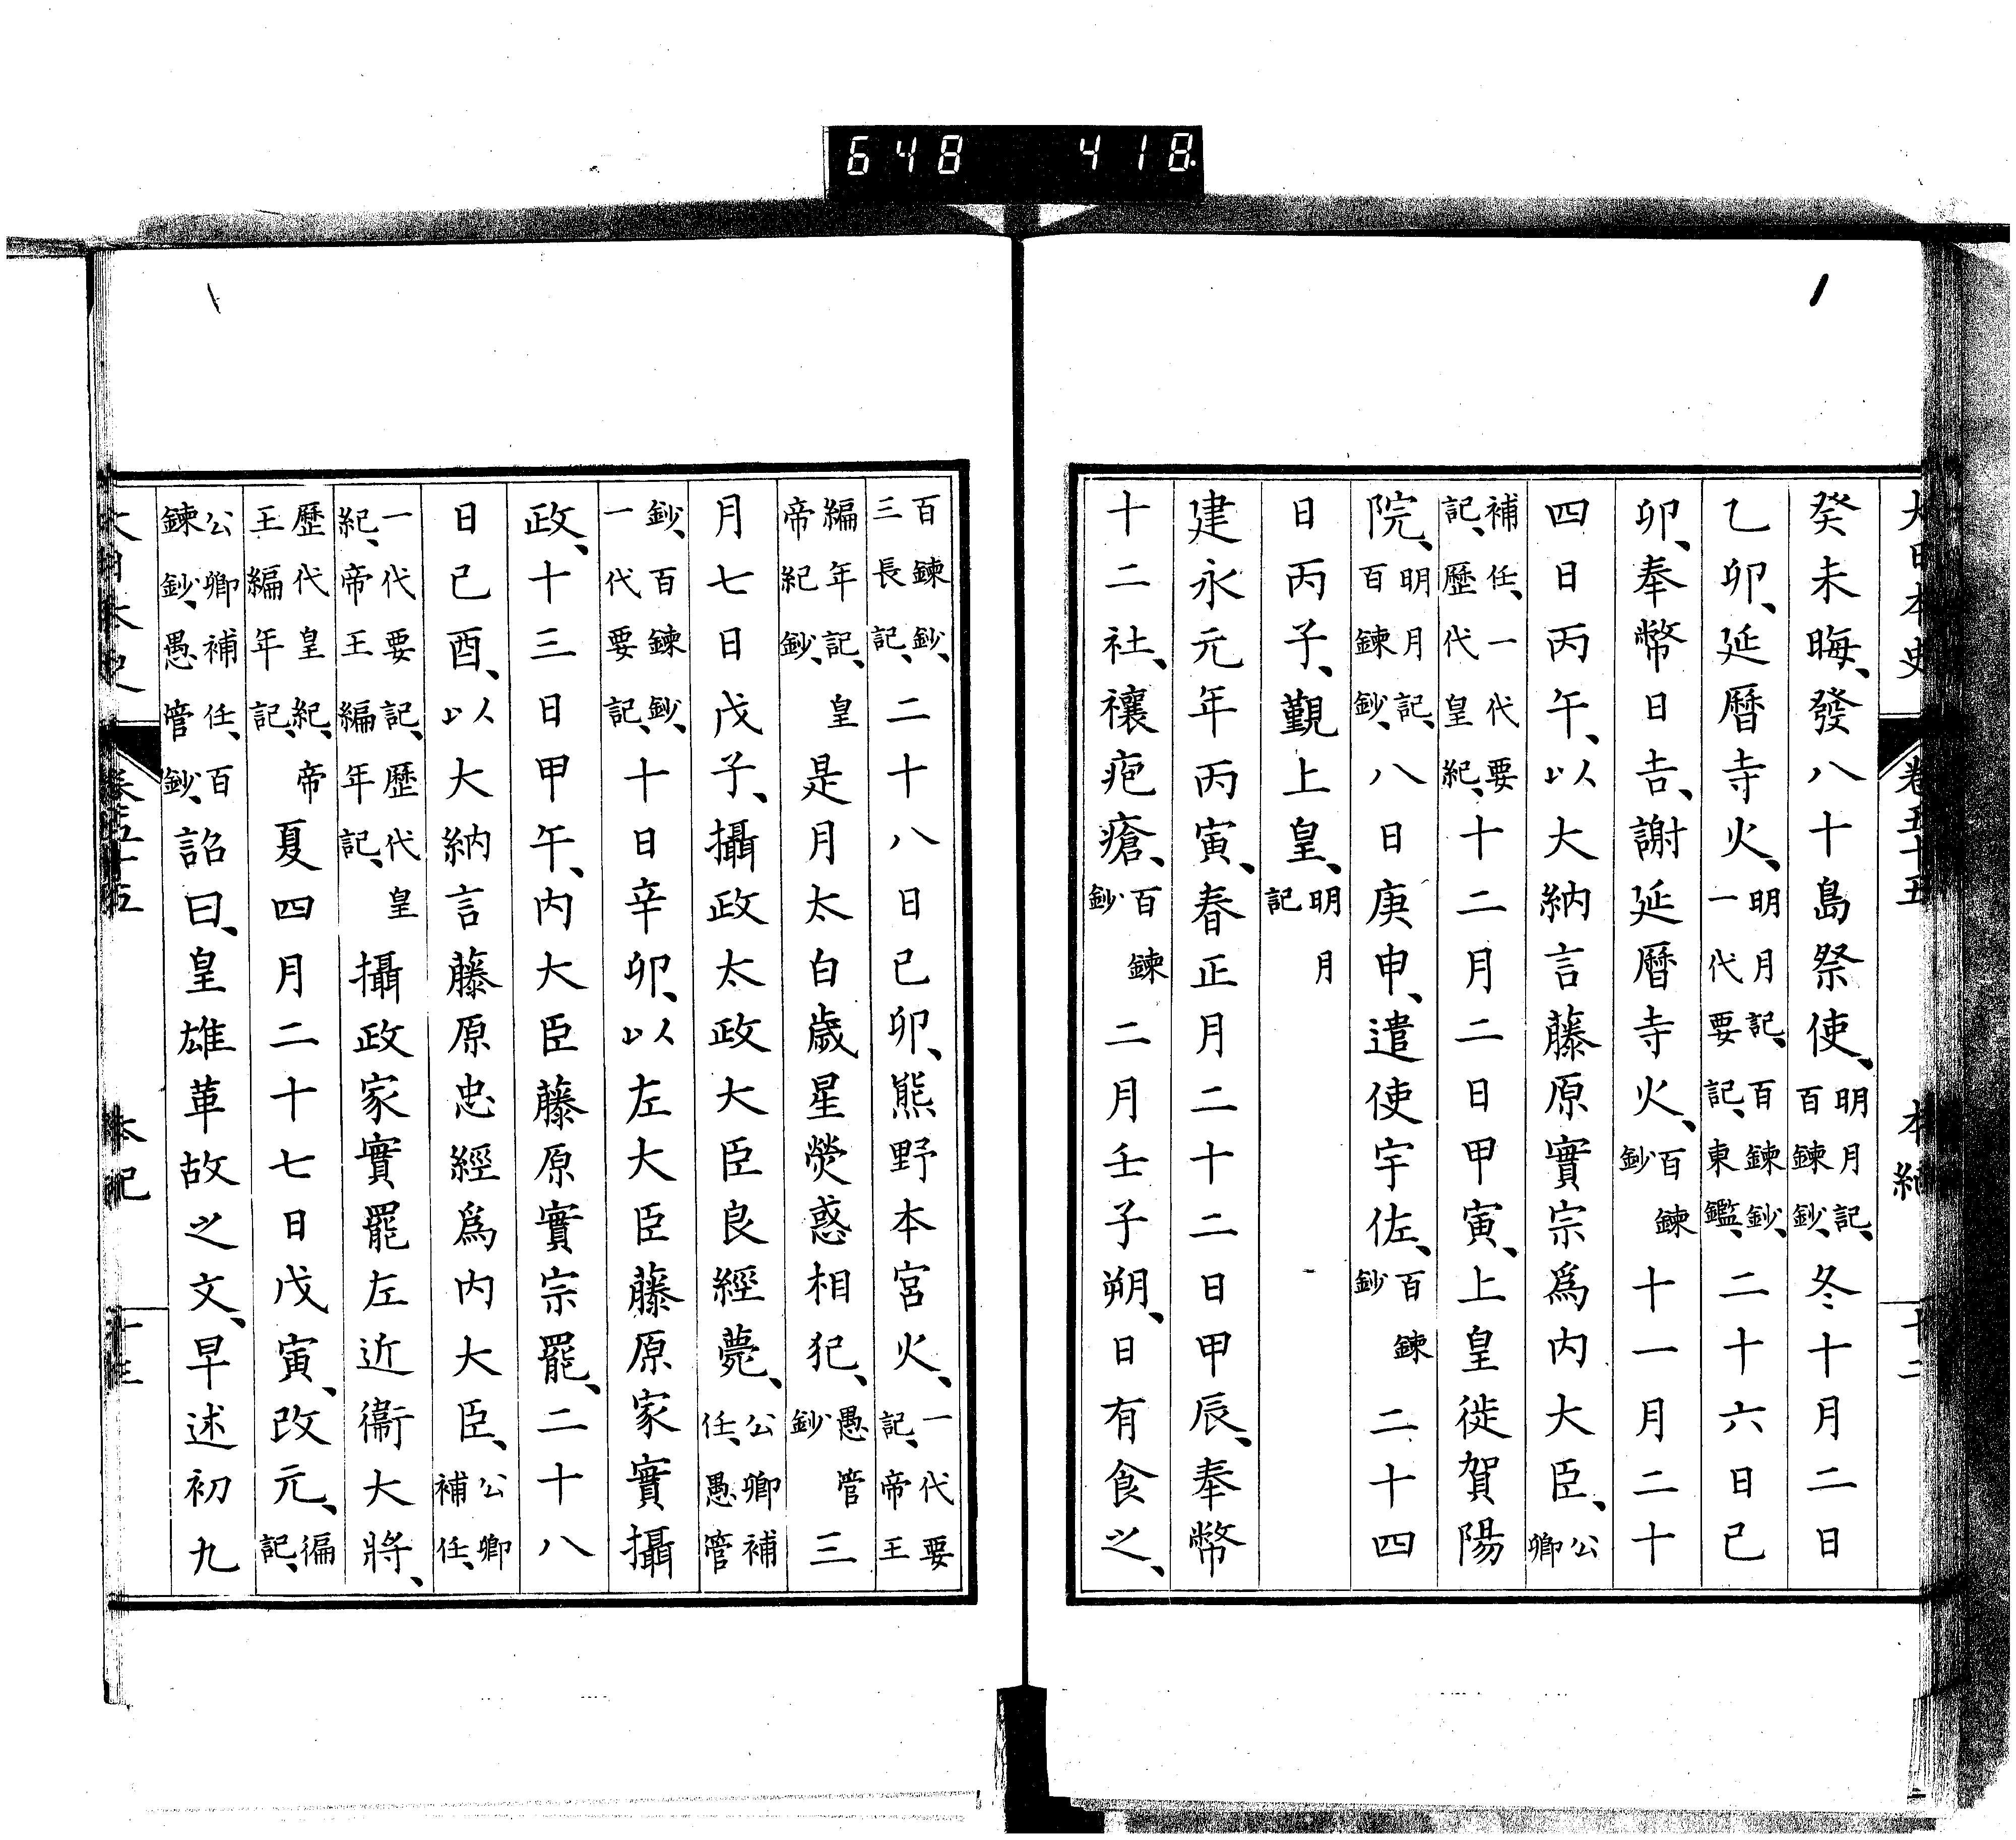 648 418
大日本史 卷五十五 本紀 十二
癸未晦、發八十島祭使、明月記、百鍊鈔、冬十月二日
乙卯、延曆寺火、明月記、百鍊鈔、一代要記、東鑑、二十六日己
卯、奉幣日吉、謝延曆寺火、百鍊鈔十一月二十
四日丙午、以大納言藤原實宗爲內大臣、公卿
補任、一代要記、歷代皇紀、十二月二日甲寅、上皇徙賀陽
院、明月記、百鍊鈔、八日庚申、遣使宇佐、百鍊鈔二十四
日丙子、覲上皇、明月記
建永元年丙寅、春正月二十二日甲辰、奉幣
十二社、禳疱瘡、百鍊鈔二月壬子朔、日有食之、
百鍊鈔、三長記、二十八日己卯、熊野本宮火、一代要記、帝王
編年記、皇帝紀鈔、是月太白歲星熒惑相犯、愚管鈔三
月七日戊子、攝政太政大臣良經薨、公卿補任、愚管
鈔、百鍊鈔、一代要記、十日辛卯、以左大臣藤原家實攝
政、十三日甲午、內大臣藤原實宗罷、二十八
日己酉、以大納言藤原忠經爲內大臣、公卿補任、
一代要記、歷代皇紀、帝王編年記、攝政家實罷左近衞大將、
歷代皇紀、帝王編年記、夏四月二十七日戊寅、改元、猪記、
公卿補任、百鍊鈔、愚管鈔、詔曰、皇雄革故之文、早述初九
大日本史 卷五十五 本紀 十三